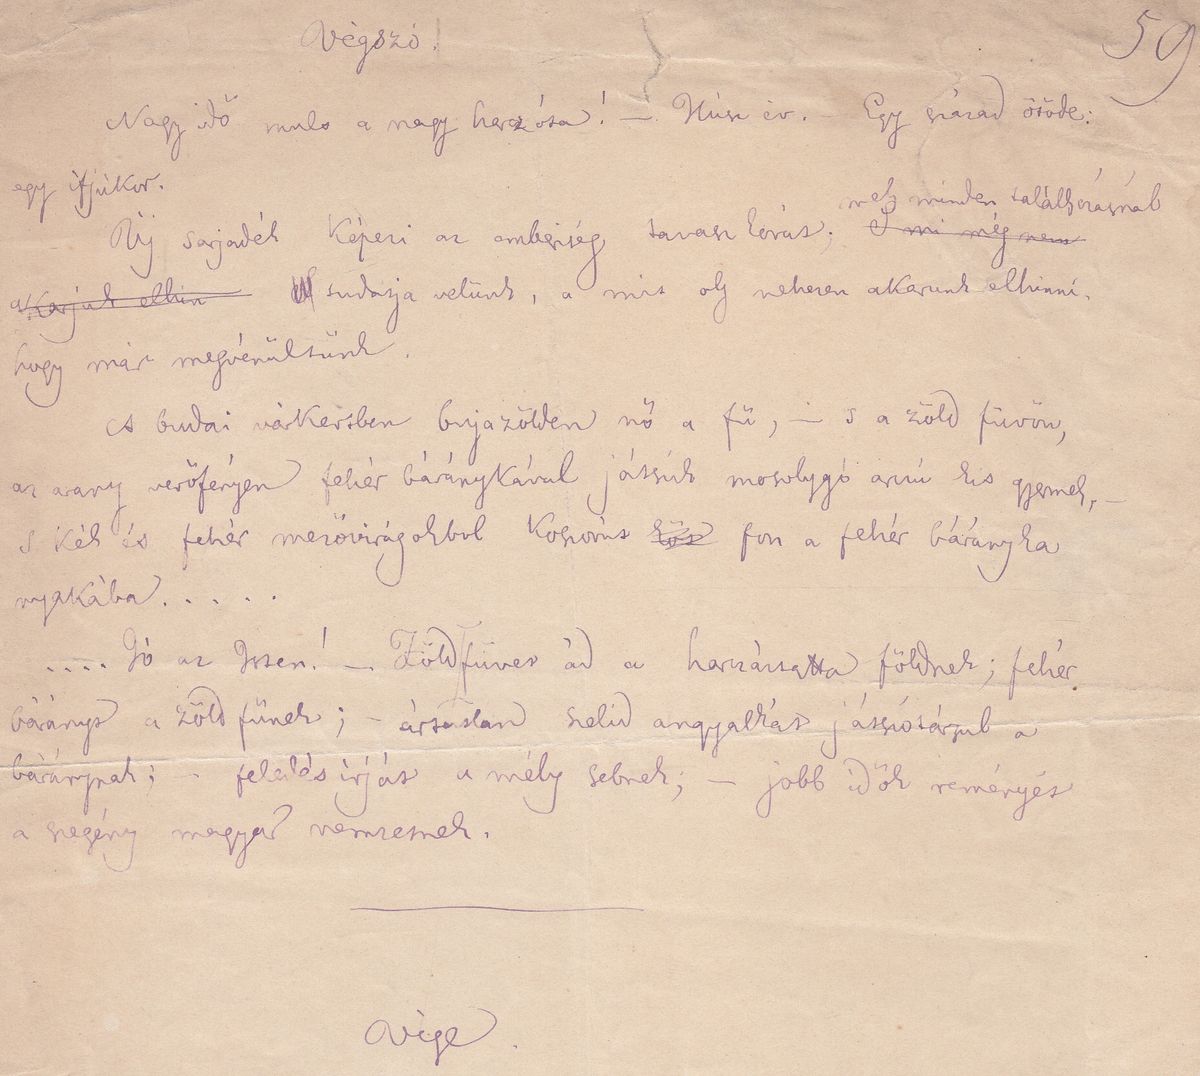 Végszó.
59
Nagy idő mult a nagy harcz óta! — Húsz év. — Egy század ötöde:
egy ifjúkor.
mely minden találkozásnál
Új sarjadék képezi az emberiség tavasz korát; S mi még nem
akarjuk elhin tudatja velünk, a mit oly nehezen akarunk elhinni,
hogy már megvénültünk.
A budai várkertben bujazölden nő a fű, — s a zöld füvön,
az arany verőfényen fehér báránykával játszik mosolygó arcú kis gyermek, —
s kék és fehér mezővirágokbol koszorút köt fon a fehér bárányka
nyakába.....
.... Jó az Isten! — Zöld füvet ád a harczáztatta földnek; fehér
bárányt a zöld fűnek; — ártatlan szelid angyalkát játszótársul a
báránynak; — feledés irját a mély sebnek; — jobb idők reményét
a szegény magyar nemzetnek.
Vége.